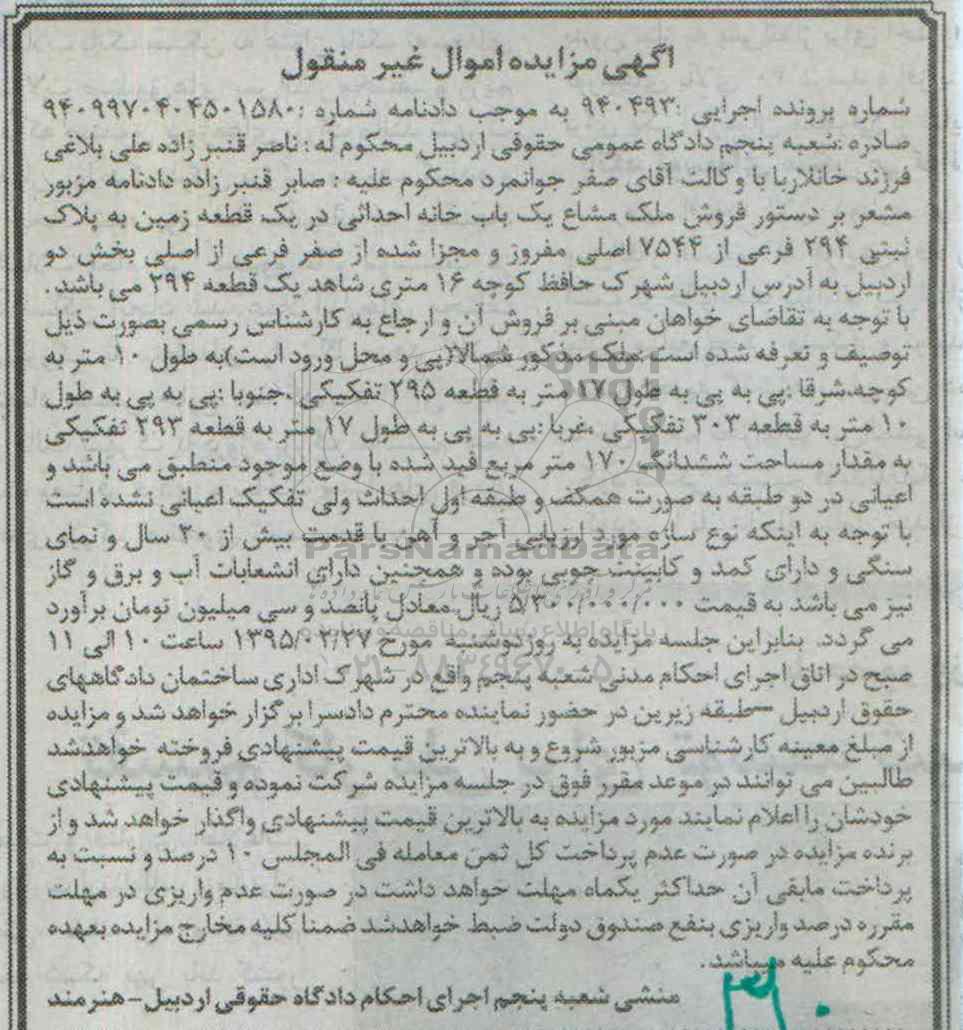 آگهی مزایده اموال غیر منقول
شماره پرونده اجرایی :۹۴۰۴۹۳ به موجب دادنامه شماره :۹۴۰۹۹۷۰۴۰۴۵۰۱۵۸۰
صادره :شعبه پنجم دادگاه عمومی حقوقی اردبیل محکوم له : ناصر قنبر زاده علی بلاغی
فرزند خانلاربا با وکالت آقای صفر جوانمرد محکوم علیه : صابر قنبر زاده دادنامه مزبور
مشعر بر دستور فروش ملک مشاع یک باب خانه احداثی در یک قطعه زمین به پلاک
ثبتی ۲۹۴ فرعی از ۷۵۴۴ اصلی مفروز و مجزا شده از صفر فرعی از اصلی بخش دو
اردبیل به آدرس اردبیل شهرک حافظ کوچه ۱۶ متری شاهد یک قطعه ۲۹۴ می باشد.
با توجه به تقاضای خواهان مبنی بر فروش آن و ارجاع به کارشناس رسمی بصورت ذیل
توصیف و تعرفه شده است :ملک مذکور شمالا(پی و محل ورود است)به طول ۱۰ متر به
کوچه،شرقا :پی به پی به طول ۱۷ متر به قطعه ۲۹۵ تفکیکی ،جنوبا :پی به پی به طول
۱۰ متر به قطعه ۳۰۳ تفکیکی ،غربا :پی به پی به طول ۱۷ متر به قطعه ۲۹۳ تفکیکی
به مقدار مساحت ششدانگ ۱۷۰ متر مربع قید شده با وضع موجود منطبق می باشد و
اعیانی در دو طبقه به صورت همکف و طبقه اول احداث ولی تفکیک اعیانی نشده است
با توجه به اینکه نوع سازه مورد ارزیابی آجر و آهن با قدمت بیش از ۲۰ سال و نمای
سنگی و دارای کمد و کابینت چوبی بوده و همچنین دارای انشعابات آب و برق و گاز
نیز می باشد به قیمت ۵/۳۰۰/۰۰۰/۰۰۰ ریال معادل پانصد و سی میلیون تومان برآورد
می گردد. بنابراین جلسه مزایده به روزدوشنبه مورخ ۱۳۹۵/۰۲/۲۷ ساعت ۱۰ الی ۱۱
صبح در اتاق اجرای احکام مدنی شعبه پنجم واقع در شهرک اداری ساختمان دادگاههای
حقوق اردبیل –طبقه زیرین در حضور نماینده محترم دادسرا برگزار خواهد شد و مزایده
از مبلغ معینه کارشناسی مزبور شروع و به بالاترین قیمت پیشنهادی فروخته خواهدشد
طالبین می توانند در موعد مقرر فوق در جلسه مزایده شرکت نموده و قیمت پیشنهادی
خودشان را اعلام نمایند مورد مزایده به بالاترین قیمت پیشنهادی واگذار خواهد شد و از
برنده مزایده در صورت عدم پرداخت کل ثمن معامله فی المجلس ۱۰ درصد و نسبت به
پرداخت مابقی آن حداکثر یکماه مهلت خواهد داشت در صورت عدم واریزی در مهلت
مقرره درصد واریزی بنفع صندوق دولت ضبط خواهدشد ضمنا کلیه مخارج مزایده بعهده
محکوم علیه میباشد.
منشی شعبه پنجم اجرای احکام دادگاه حقوقی اردبیل-هنرمند
ParsNamadData
۰۲۱-۸۸۳۴۹۶۷۰-۵